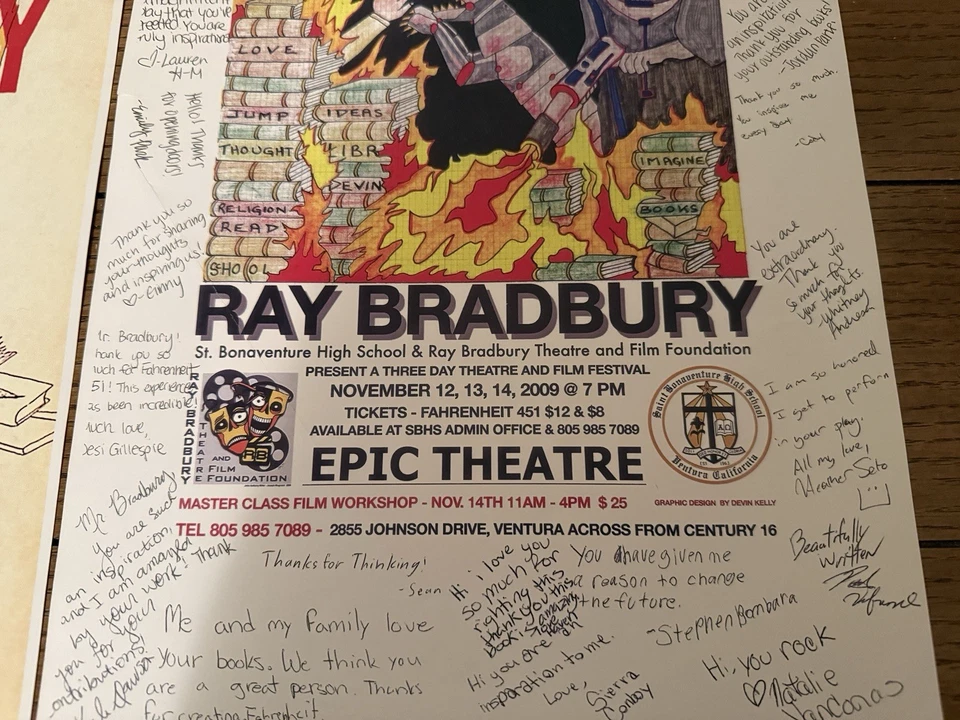 say that you've
created. You are
truly inspirational
♡-Lauren
H-M
Hello! Thanks
for opening doors!
-Emily
Thank you so
much for sharing
your thoughts
and inspiring us
♡-Emmy
Mr. Bradbury!
Thank you so
much for Fahrenheit
451! This experience
has been incredible!
much love,
Jesi Gillespie
Mr. Bradbury
You are such
an inspiration
and I am amazed
by your work! Thank
you for your
contributions!
LOVE
JUMP
THOUGHT
RELIGION
READ
SHOOL
IDEAS
LIBR
DEVIN
IMAGINE
BOOKS
You are
an inspiration
Thank you for
your outstanding books
-Jordan
Thank you so much.
You inspire me
every day.
-Cady
You are
extraordinary.
Thank you
so much for
your thoughts.
-Whitney
Andrea
I am so honored
I get to perform
in your play.
All my love,
Heather Seto
RAY BRADBURY
St. Bonaventure High School & Ray Bradbury Theatre and Film Foundation
PRESENT A THREE DAY THEATRE AND FILM FESTIVAL
NOVEMBER 12, 13, 14, 2009 @ 7 PM
TICKETS - FAHRENHEIT 451 $12 & $8
AVAILABLE AT SBHS ADMIN OFFICE & 805 985 7089
EPIC THEATRE
RAY BRADBURY
THEATRE
AND
FILM
FOUNDATION
RB
Saint Bonaventure High School
Ventura California
MASTER CLASS FILM WORKSHOP - NOV. 14TH 11AM - 4PM $ 25
GRAPHIC DESIGN BY DEVIN KELLY
TEL 805 985 7089 - 2855 JOHNSON DRIVE, VENTURA ACROSS FROM CENTURY 16
Thanks for Thinking!
-Sean
Me and my family love
Your books. We think you
are a great person. Thanks
for creating Fahrenheit.
Hi i love you
so much for
righting this
thank you this
book is amazing
Hi you are
inspiration to me.
Love,
Sierra
Conboy
You have given me
a reason to change
the future.
-Stephen Bombara
Beautifully
Written
Hi, you rock
♡ Natalie